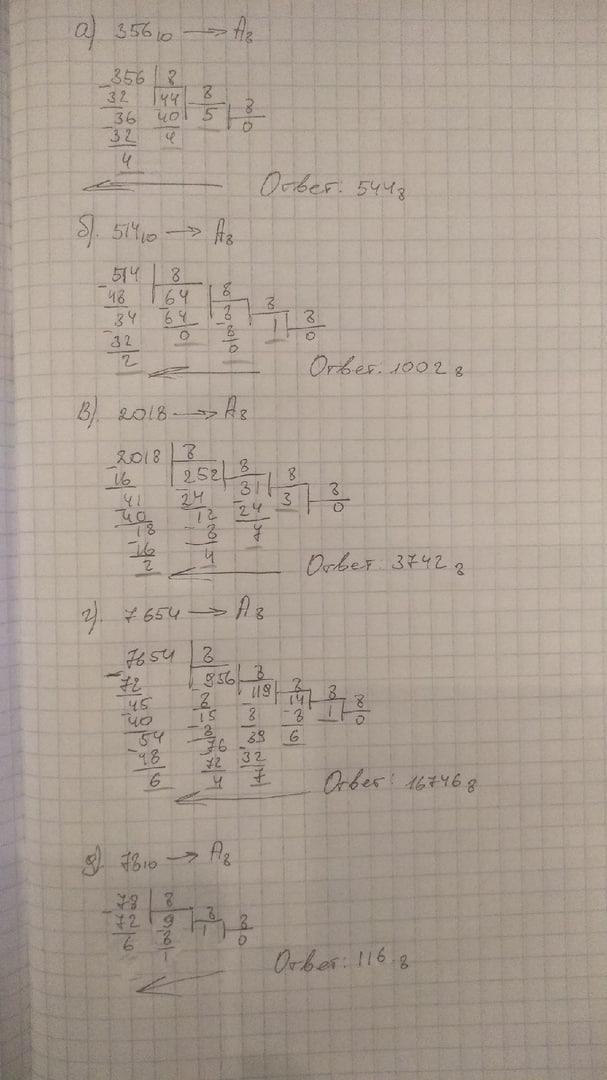 а) 356₁₀ → A₈
-356 | 8
32 | 44 | 8
36 | 40 | 5 | 8
32 | 4 | 0
4
Ответ: 544₈
б). 514₁₀ → A₈
-514 | 8
48 | 64 | 8
-34 | 64 | 8 | 8
-32 | 0 | -8 | 1 | 8
2 | 0 | 0
Ответ. 1002₈
в). 2018 → A₈
-2018 | 8
16 | 252 | 8
41 | 24 | 31 | 8
-40 | 12 | -24 | 3 | 8
18 | -8 | 7 | 0
-16 | 4
2
Ответ: 3742₈
г). 7654 → A₈
7654 | 8
-72 | 956 | 8
45 | -8 | 119 | 8
40 | 15 | -8 | 14 | 8
54 | -8 | 39 | -8 | 1 | 8
-48 | 76 | -32 | 6 | 0
6 | 72 | 7
4
Ответ: 16746₈
д). 78₁₀ → A₈
-78 | 8
72 | 9 | 8
6 | 8 | 1 | 8
1 | 0
Ответ: 116.₈